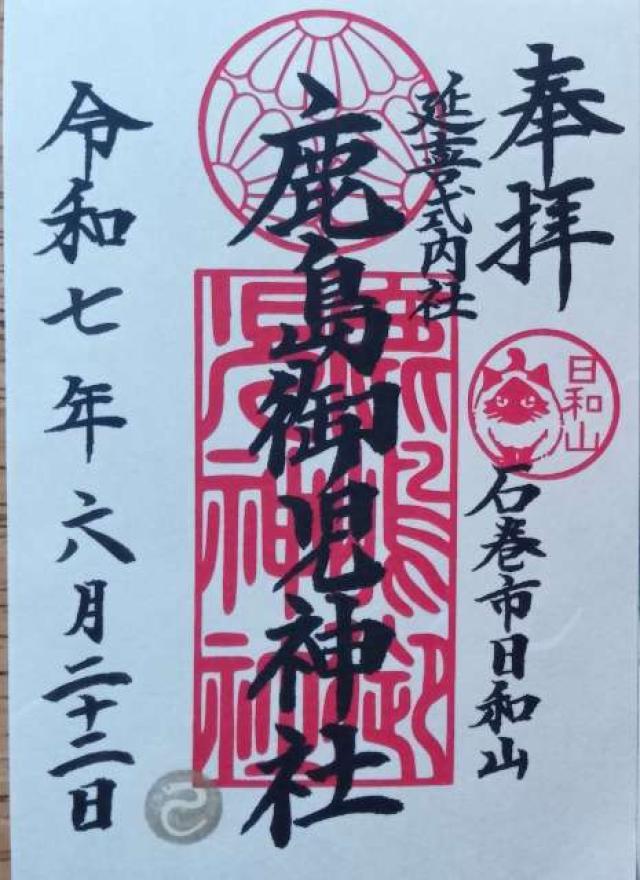 奉拝
延喜式内社
日和山
石巻市日和山
鹿島御児神社
令和七年六月二十二日